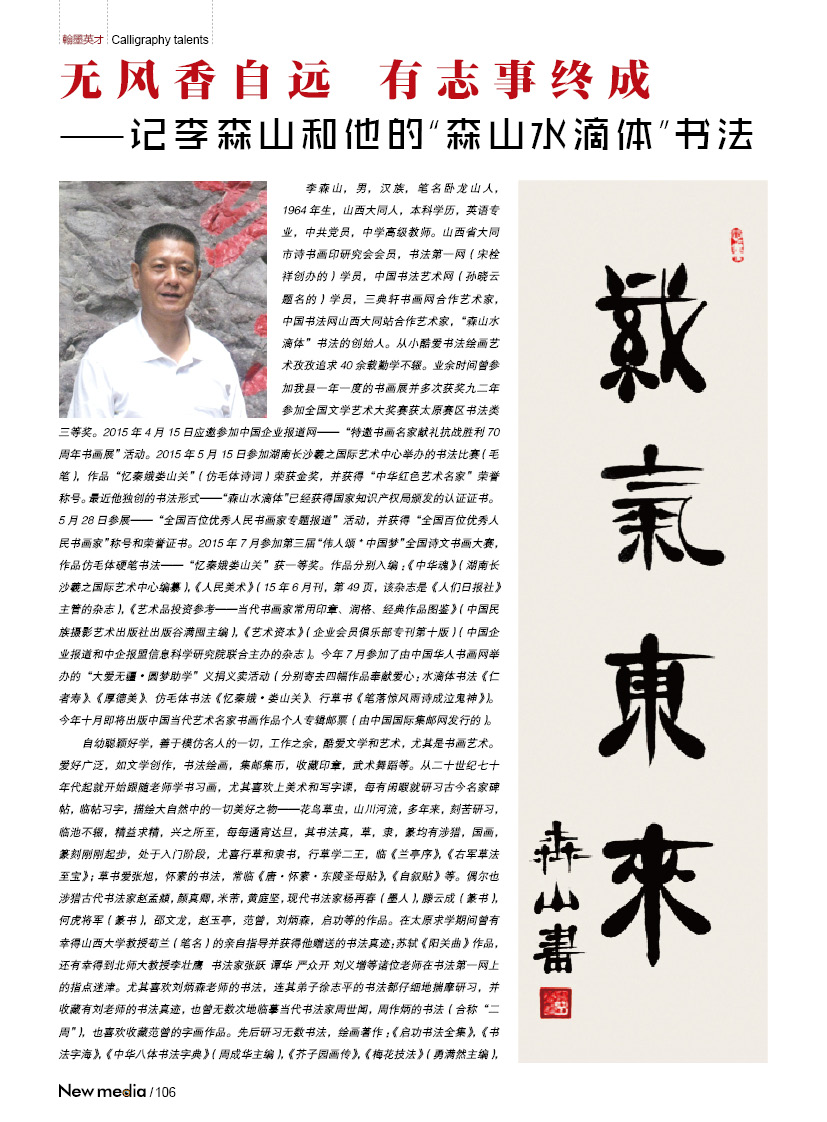 翰墨英才 Calligraphy talents
无风香自远 有志事终成
——记李森山和他的“森山水滴体”书法
李森山，男，汉族，笔名卧龙山人，
1964年生，山西大同人，本科学历，英语专
业，中共党员，中学高级教师。山西省大同
市诗书画印研究会会员，书法第一网（宋栓
祥创办的）学员，中国书法艺术网（孙晓云
题名的）学员，三典轩书画网合作艺术家，
中国书法网山西大同站合作艺术家，“森山水
滴体”书法的创始人。从小酷爱书法绘画艺
术孜孜追求40余载勤学不辍。业余时间曾参
加我县一年一度的书画展并多次获奖九二年
参加全国文学艺术大奖赛获太原赛区书法类
三等奖。2015年4月15日应邀参加中国企业报道网——“特邀书画名家献礼抗战胜利70
周年书画展”活动。2015年5月15日参加湖南长沙羲之国际艺术中心举办的书法比赛（毛
笔），作品“忆秦娥娄山关”（仿毛体诗词）荣获金奖，并获得“中华红色艺术名家”荣誉
称号。最近他独创的书法形式——“森山水滴体”已经获得国家知识产权局颁发的认证证书。
5月28日参展——“全国百位优秀人民书画家专题报道”活动，并获得“全国百位优秀人
民书画家”称号和荣誉证书。2015年7月参加第三届“伟人颂*中国梦”全国诗文书画大赛，
作品仿毛体硬笔书法——“忆秦娥娄山关”获一等奖。作品分别入编：《中华魂》（湖南长
沙羲之国际艺术中心编纂），《人民美术》（15年6月刊，第49页，该杂志是《人们日报社》
主管的杂志），《艺术品投资参考——当代书画家常用印章、润格、经典作品图鉴》（中国民
族摄影艺术出版社出版谷满囤主编），《艺术资本》（企业会员俱乐部专刊第十版）（中国企
业报道和中企报盟信息科学研究院联合主办的杂志）。今年7月参加了由中国华人书画网举
办的“大爱无疆·圆梦助学”义捐义卖活动（分别寄去四幅作品奉献爱心：水滴体书法《仁
者寿》、《厚德美》、仿毛体书法《忆秦娥·娄山关》、行草书《笔落惊风雨诗成泣鬼神》）。
今年十月即将出版中国当代艺术名家书画作品个人专辑邮票（由中国国际集邮网发行的）。
自幼聪颖好学，善于模仿名人的一切，工作之余，酷爱文学和艺术，尤其是书画艺术。
爱好广泛，如文学创作，书法绘画，集邮集币，收藏印章，武术舞蹈等。从二十世纪七十
年代起就开始跟随老师学书习画，尤其喜欢上美术和写字课，每有闲暇就研习古今名家碑
帖，临帖习字，描绘大自然中的一切美好之物——花鸟草虫，山川河流，多年来，刻苦研习，
临池不辍，精益求精，兴之所至，每每通宵达旦，其书法真，草，隶，篆均有涉猎，国画，
篆刻刚刚起步，处于入门阶段，尤喜行草和隶书，行草学二王，临《兰亭序》，《右军草法
至宝》；草书爱张旭，怀素的书法，常临《唐·怀素·东陵圣母贴》，《自叙贴》等。偶尔也
涉猎古代书法家赵孟頫，颜真卿，米芾，黄庭坚，现代书法家杨再春（墨人），滕云成（篆书），
何虎将军（篆书），邵文龙，赵玉亭，范曾，刘炳森，启功等的作品。在太原求学期间曾有
幸得山西大学教授荀兰（笔名）的亲自指导并获得他赠送的书法真迹：苏轼《阳关曲》作品，
还有幸得到北师大教授李壮鹰 书法家张跃 谭华 严众开 刘义增等诸位老师在书法第一网上
的指点迷津。尤其喜欢刘炳森老师的书法，连其弟子徐志平的书法都仔细地揣摩研习，并
收藏有刘老师的书法真迹，也曾无数次地临摹当代书法家周世闻，周作炳的书法（合称“二
周”），也喜欢收藏范曾的字画作品。先后研习无数书法，绘画著作：《启功书法全集》，《书
法字海》，《中华八体书法字典》（周成华主编），《芥子园画传》，《梅花技法》（勇满然主编），
氣東來
山書
New media / 106